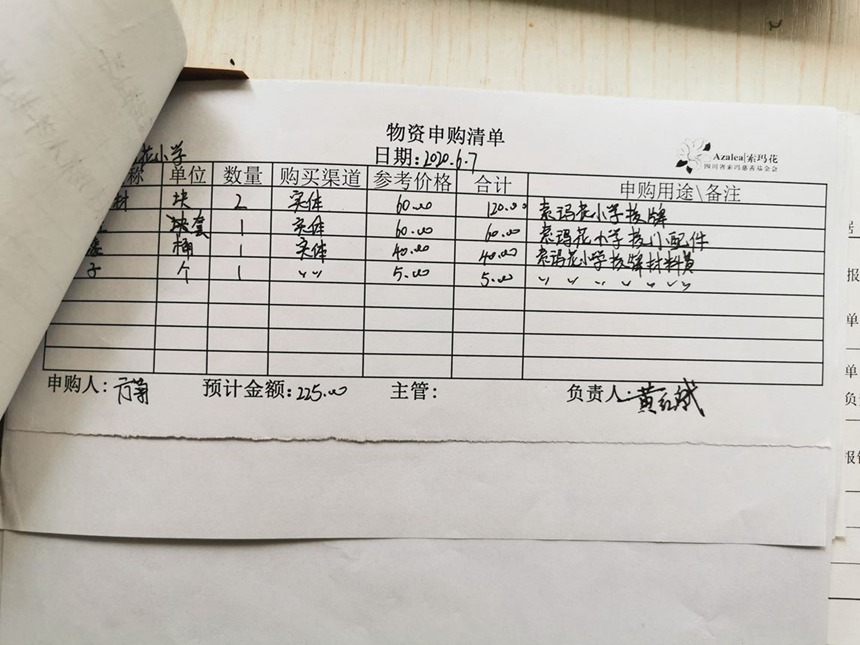 物资申购清单
Azalea|索玛花
四川省索玛慈善基金会
花小学 日期:2020.6.7
称 单位 数量 购买渠道 参考价格 合计 申购用途\备注
材 块 2 实体 60.00 120.00 索玛花小学校牌
套 1 实体 60.00 60.00 索玛花小学校门配件
桶 1 实体 40.00 40.00 索玛花小学校牌材料费
子 个 1 〃 5.00 5.00 〃 〃 〃 〃 〃 〃
申购人: 预计金额:225.00 主管: 负责人:黄红斌
报
单
单
负
报销